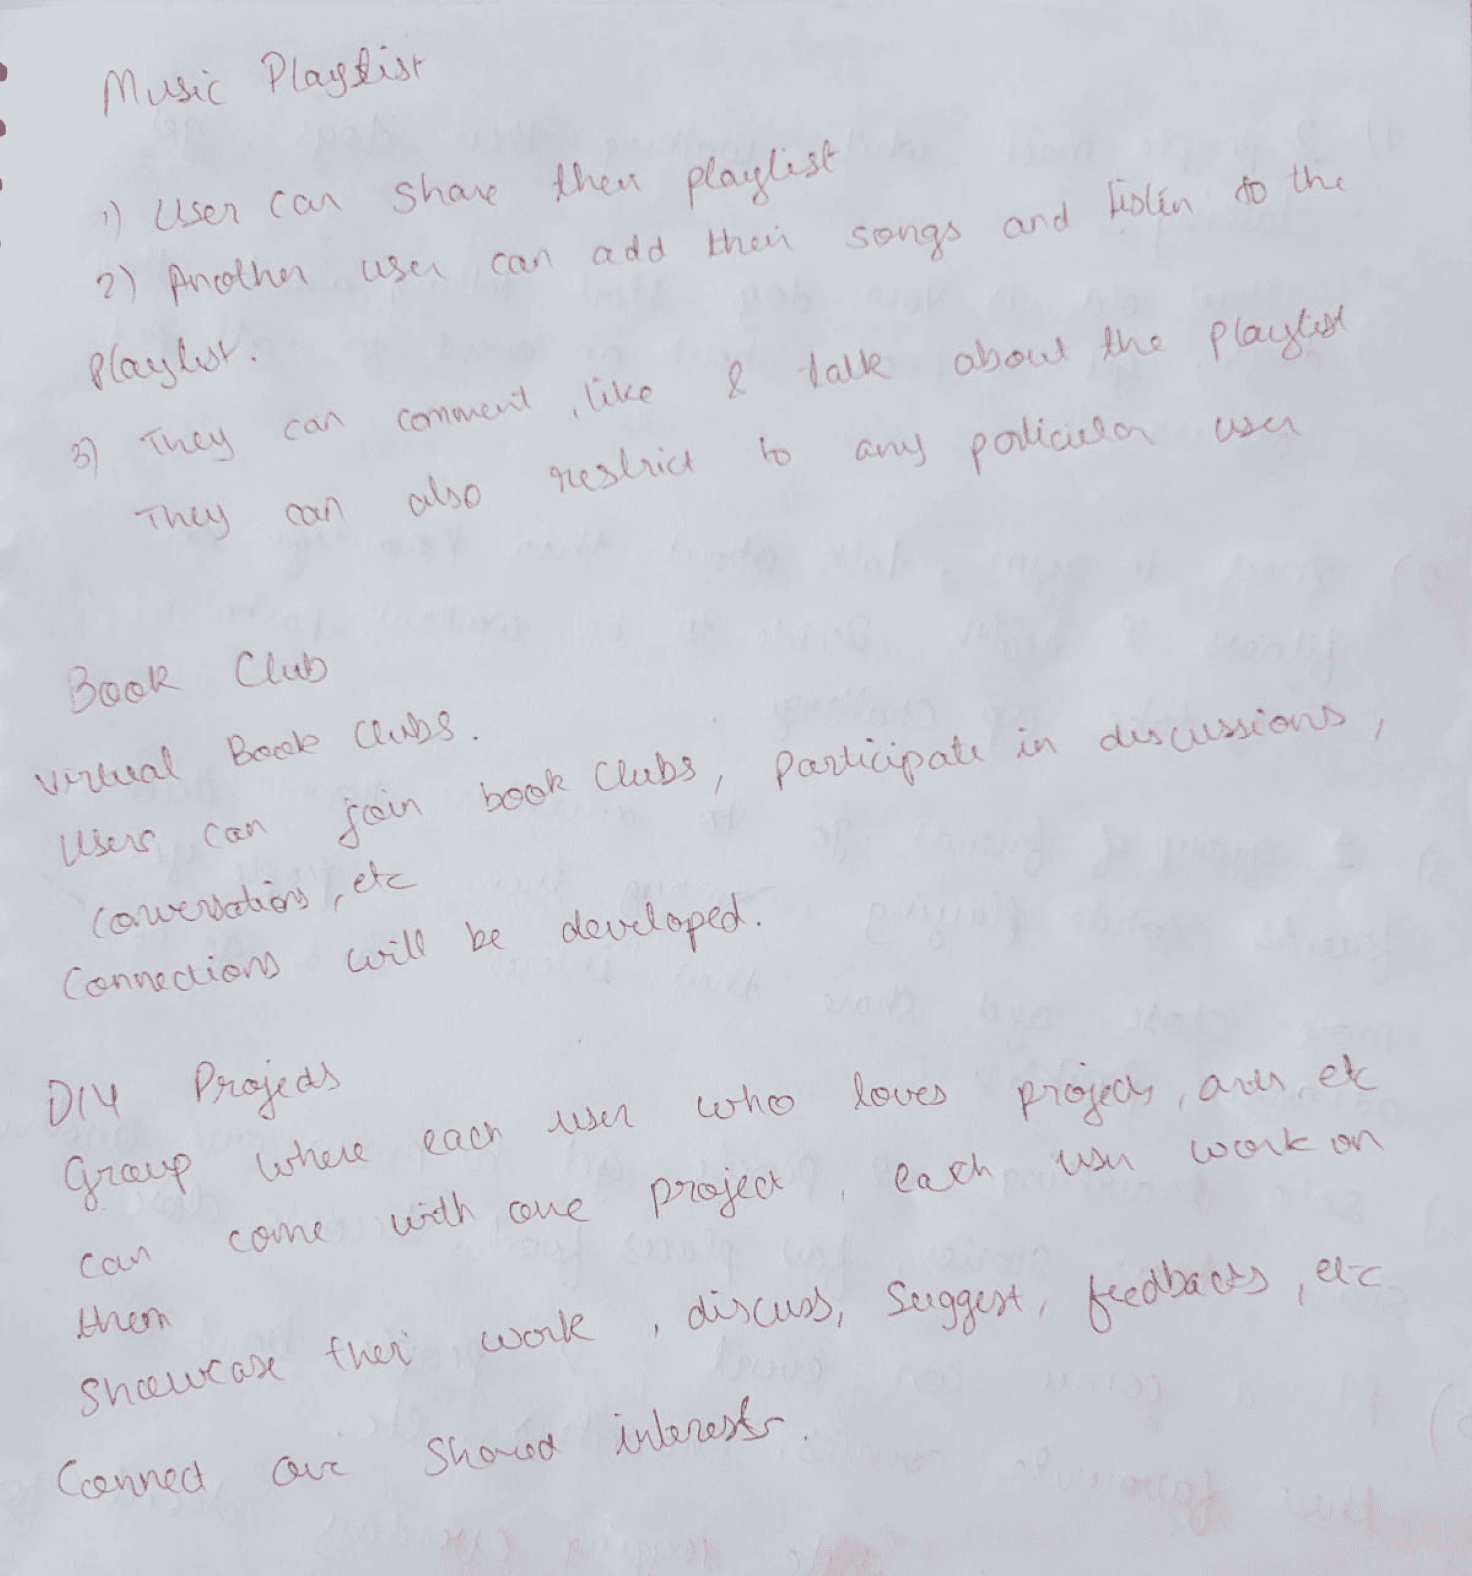 Music Playlist
1) User can share their playlist
2) Another user can add their songs and listen to the
playlist.
3) They can comment, like & talk about the playlist
They can also restrict to any particular user
Book Club
Virtual Book Clubs.
Users can join book clubs, participate in discussions,
conversations, etc
Connections will be developed.
DIY Projects
Group where each user who loves projects, arts, etc
can come with one project, each user work on
them
Showcase their work, discuss, suggest, feedbacks, etc
Connect over shared interests.